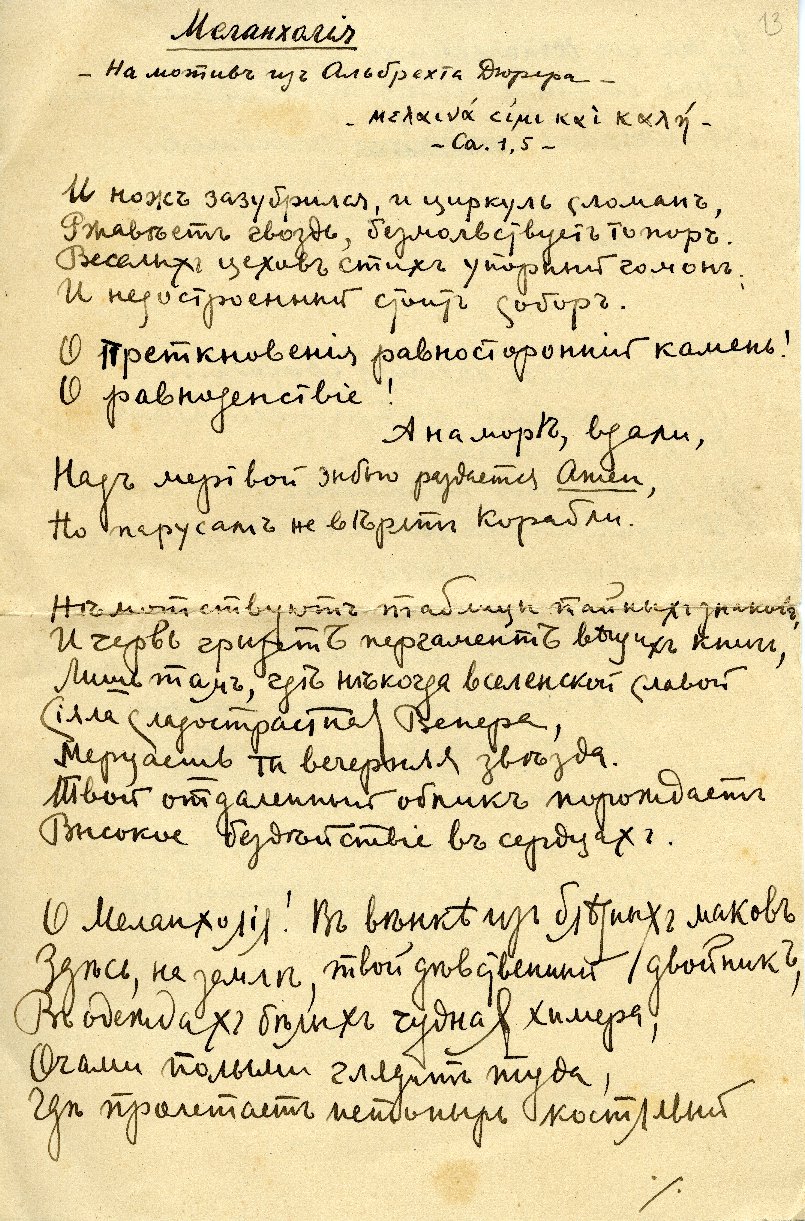 13
Меланхолія
- На мотивъ изъ Альбрехта Дюрера -
- μελαινά εἰμι καὶ καλή -
- Ca. 1,5 -
И ножъ зазубрился, и циркуль сломанъ,
Ржавѣетъ гвоздь, безмолвствуетъ топоръ.
Веселыхъ цеховъ стихъ упорный гомонъ,
И недостроенный стоитъ соборъ.
О Преткновенія равносторонній камень!
О равноденствіе!
А на морѣ, вдали,
Надъ мертвой зыбью раздается Amen,
Но парусамъ не вѣрятъ корабли.
Нѣмотствуютъ таблицы тайныхъ знаковъ,
И червь грызетъ пергаментъ вѣщихъ книгъ,
Лишь тамъ, гдѣ нѣкогда вселенской славой
Сіяла сладострастная Венера,
Мерцаешь ты вечерняя звѣзда.
Твой отдаленный обликъ порождаетъ
Высокое бездѣйствіе въ сердцахъ.
О Меланхолія! Въ вѣнкѣ изъ блѣдныхъ маковъ
Здѣсь, на землѣ, твой дѣвственный двойникъ,
Въ одеждахъ бѣлыхъ чудная химера,
Очами полыми глядитъ туда,
Гдѣ пролетаетъ нетопырь костлявый
./.